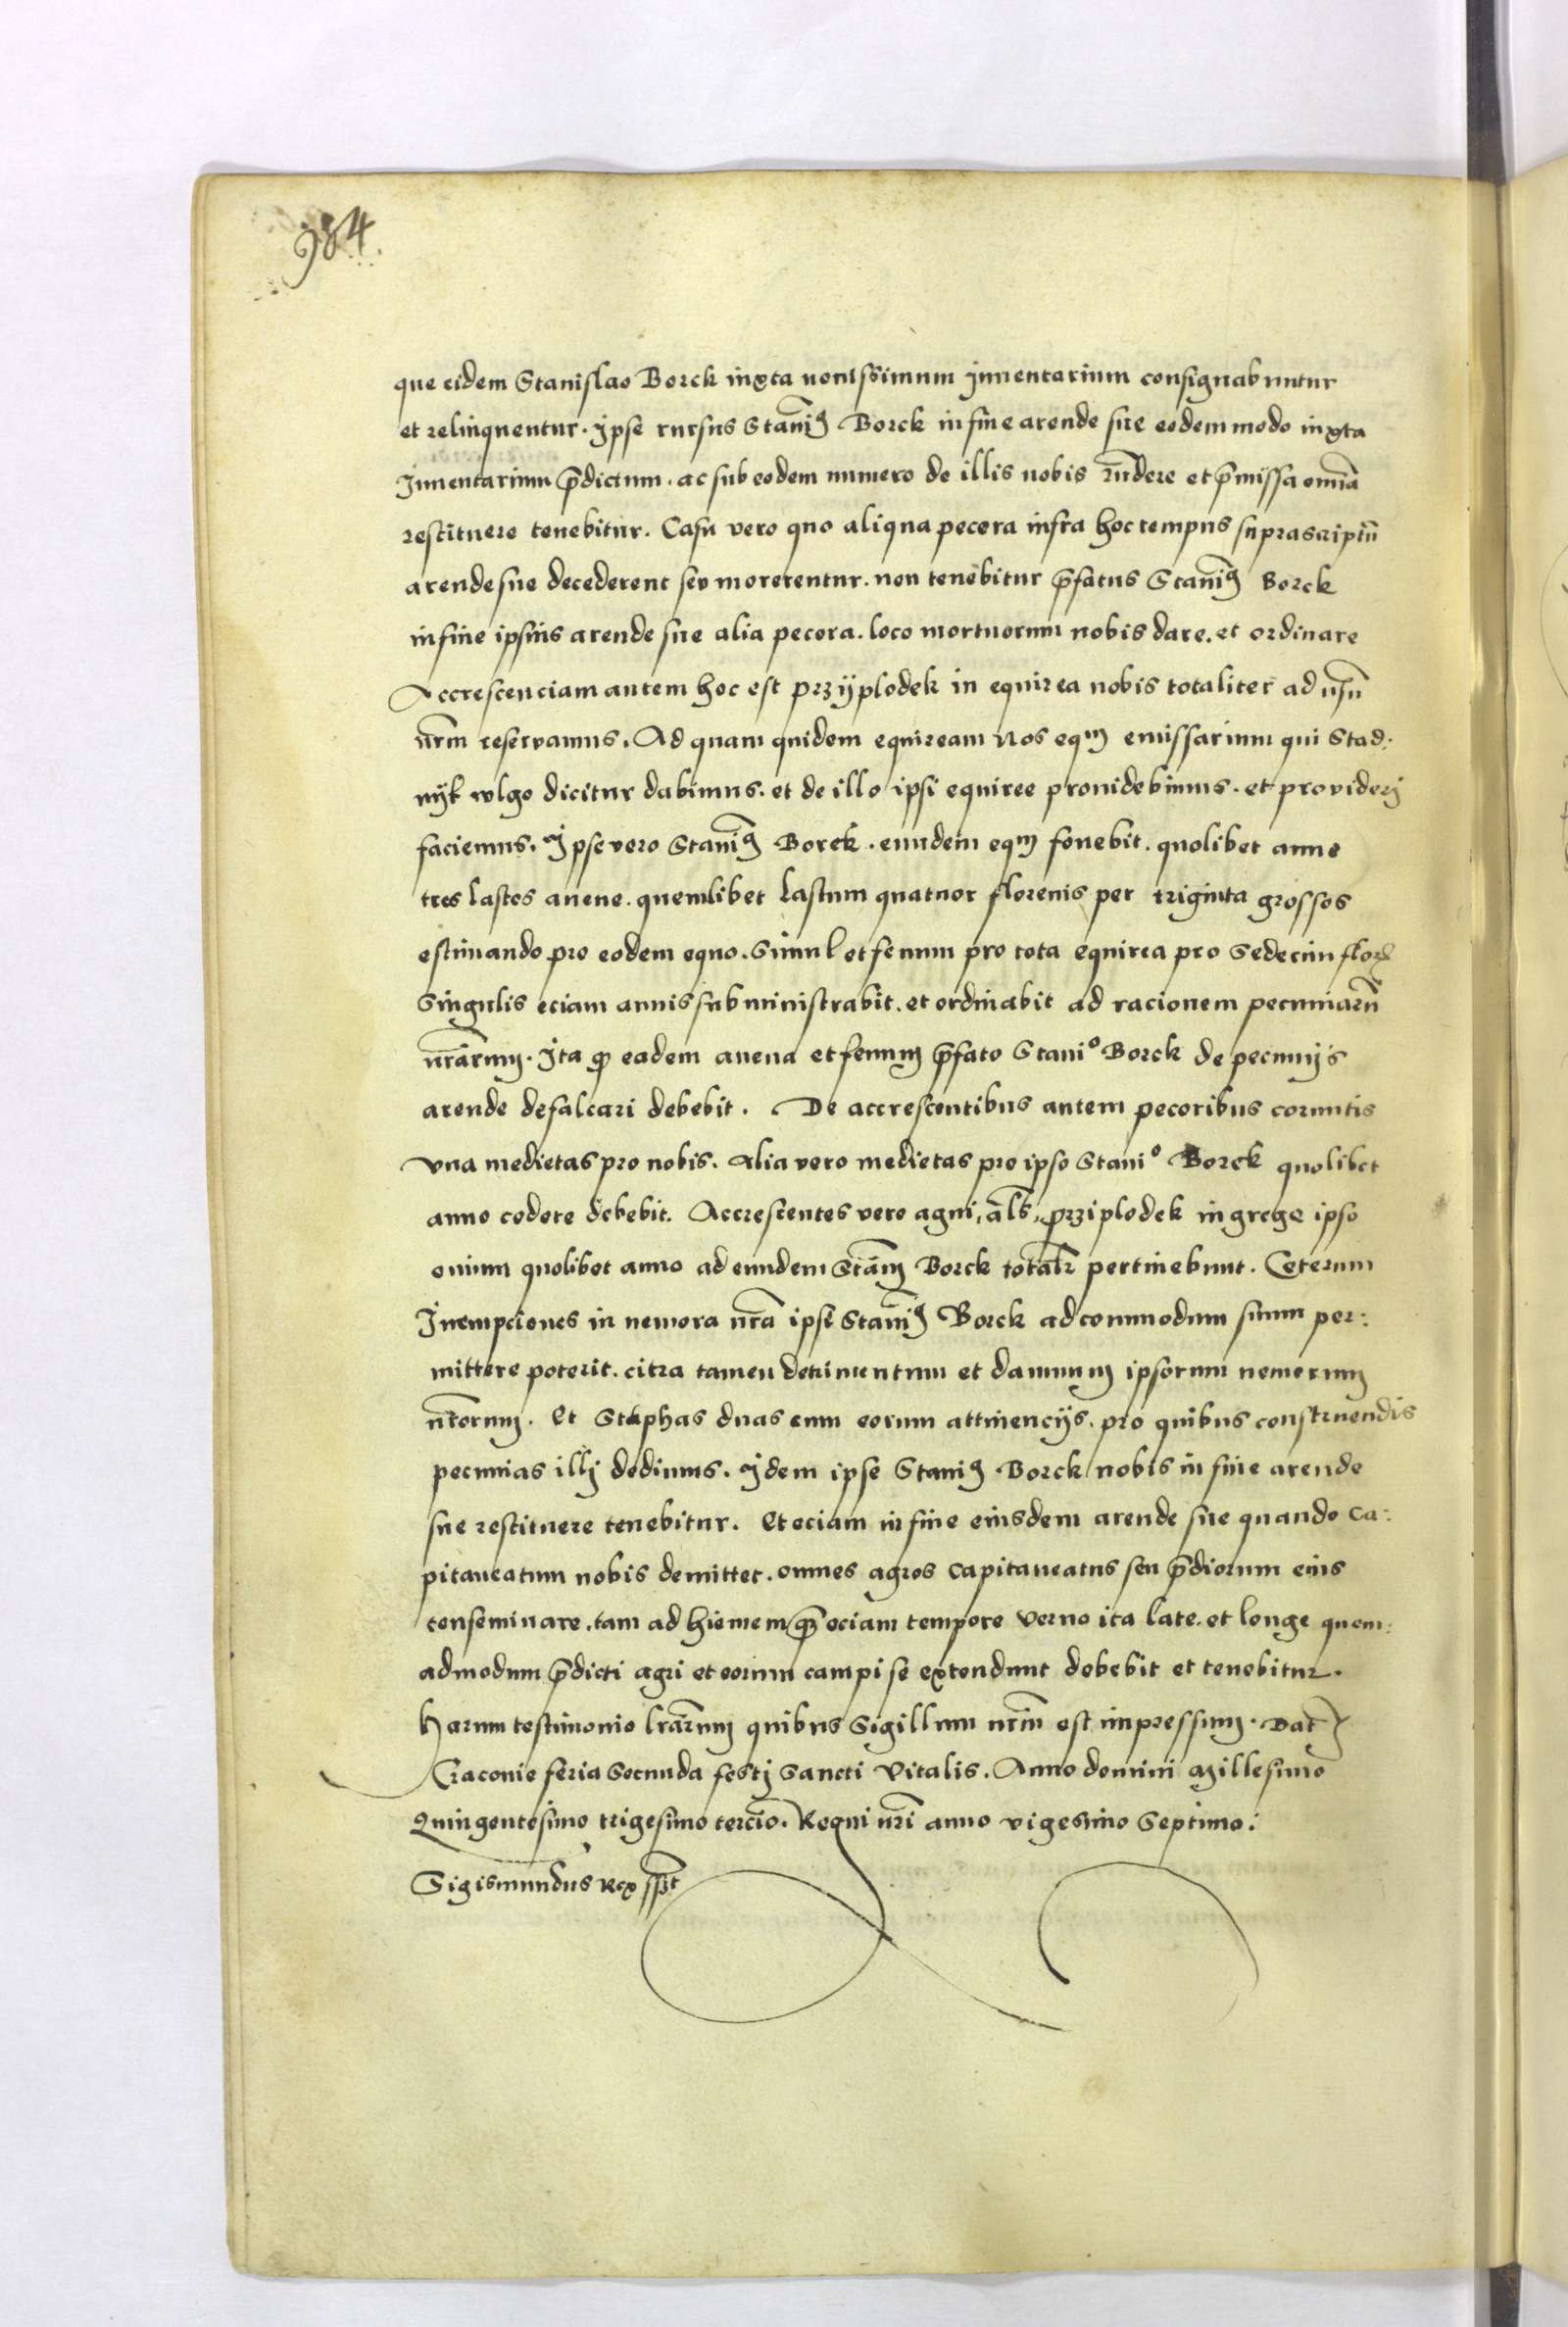 984
que eidem Stanislao Borck iuxta nouissimum Inuentarium consignabuntur
et relinquentur. Ipse rursus Stani9 Borck in fine arende sue eodem modo iuxta
Inuentarium p̄dictum. ac sub eodem numero de illis nobis r̄ndere et p̄missa om̄ia
restituere tenebitur. Casu vero quo aliqua pecora infra hoc tempus suprascriptū
arende sue decederent seu morerentur. non tenebitur p̄fatus Stani9 Borck
in fine ipsius arende sue alia pecora. loco mortuorum nobis dare. et ordinare
Accrescenciam autem hoc est przyplodek in equirea nobis totaliter ad usū
nr̄m reservamus. Ad quam quidem equiream Nos equm emissarium qui Stad:
nyk vlgo dicitur dabimus. et de illo ipsi equiree prouidebimus. et provideri
faciemus. Ipse vero Stani9 Borck. eundem equm fouebit. quolibet anno
tres lastos auene. quemlibet Lastum quatuor florenis per triginta grossos
estimando pro eodem equo. Simul et fenum pro tota equirea pro Sedecim flor
Singulis eciam annis subministrabit. et ordinabit ad racionem pecuniarū
nr̄arum. Ita q eadem auena et fenum p̄fato Stanio Borck de pecunijs
arende defalcari debebit. De accrescentibus autem pecoribus cornutis
vna medietas pro nobis. Alia vero medietas pro ipso Stanio Borck quolibet
anno cedere debebit. Accrescentes vero agni, al̄s, prziplodek in grege ipso
ouium quolibet anno ad eundem Stan̄m Borck totalr̄ pertinebunt. Ceterum
Inempciones in nemora nr̄a ipse Stani9 Borck ad commodum suum per:
mittere poterit. citra tamen detrimentum et damnum ipsorum nemorum
nr̄orum. Et Stuphas duas cum eorum attinencijs. pro quibus construendis
pecunias illj dedimus. Idem ipse Stani9 Borck nobis in fine arende
sue restituere tenebitur. Et eciam in fine eiusdem arende sue quando Ca:
pitaneatum nobis demittet. omnes agros Capitaneatus seu p̄diorum eius
conseminare. tam ad hiemem q̄ eciam tempore verno ita late. et longe quem:
admodum p̄dicti agri et eorum campi se extendunt debebit et tenebitur.
Harum testimonio lr̄arum quibus Sigillum nr̄m est impressum. Dat
Cracouie feria Secunda festj Sancti Vitalis. Anno domini Millesimo
Quingentesimo trigesimo tercio. Regni nr̄i anno vigesimo Septimo:
Sigismundus Rex sst